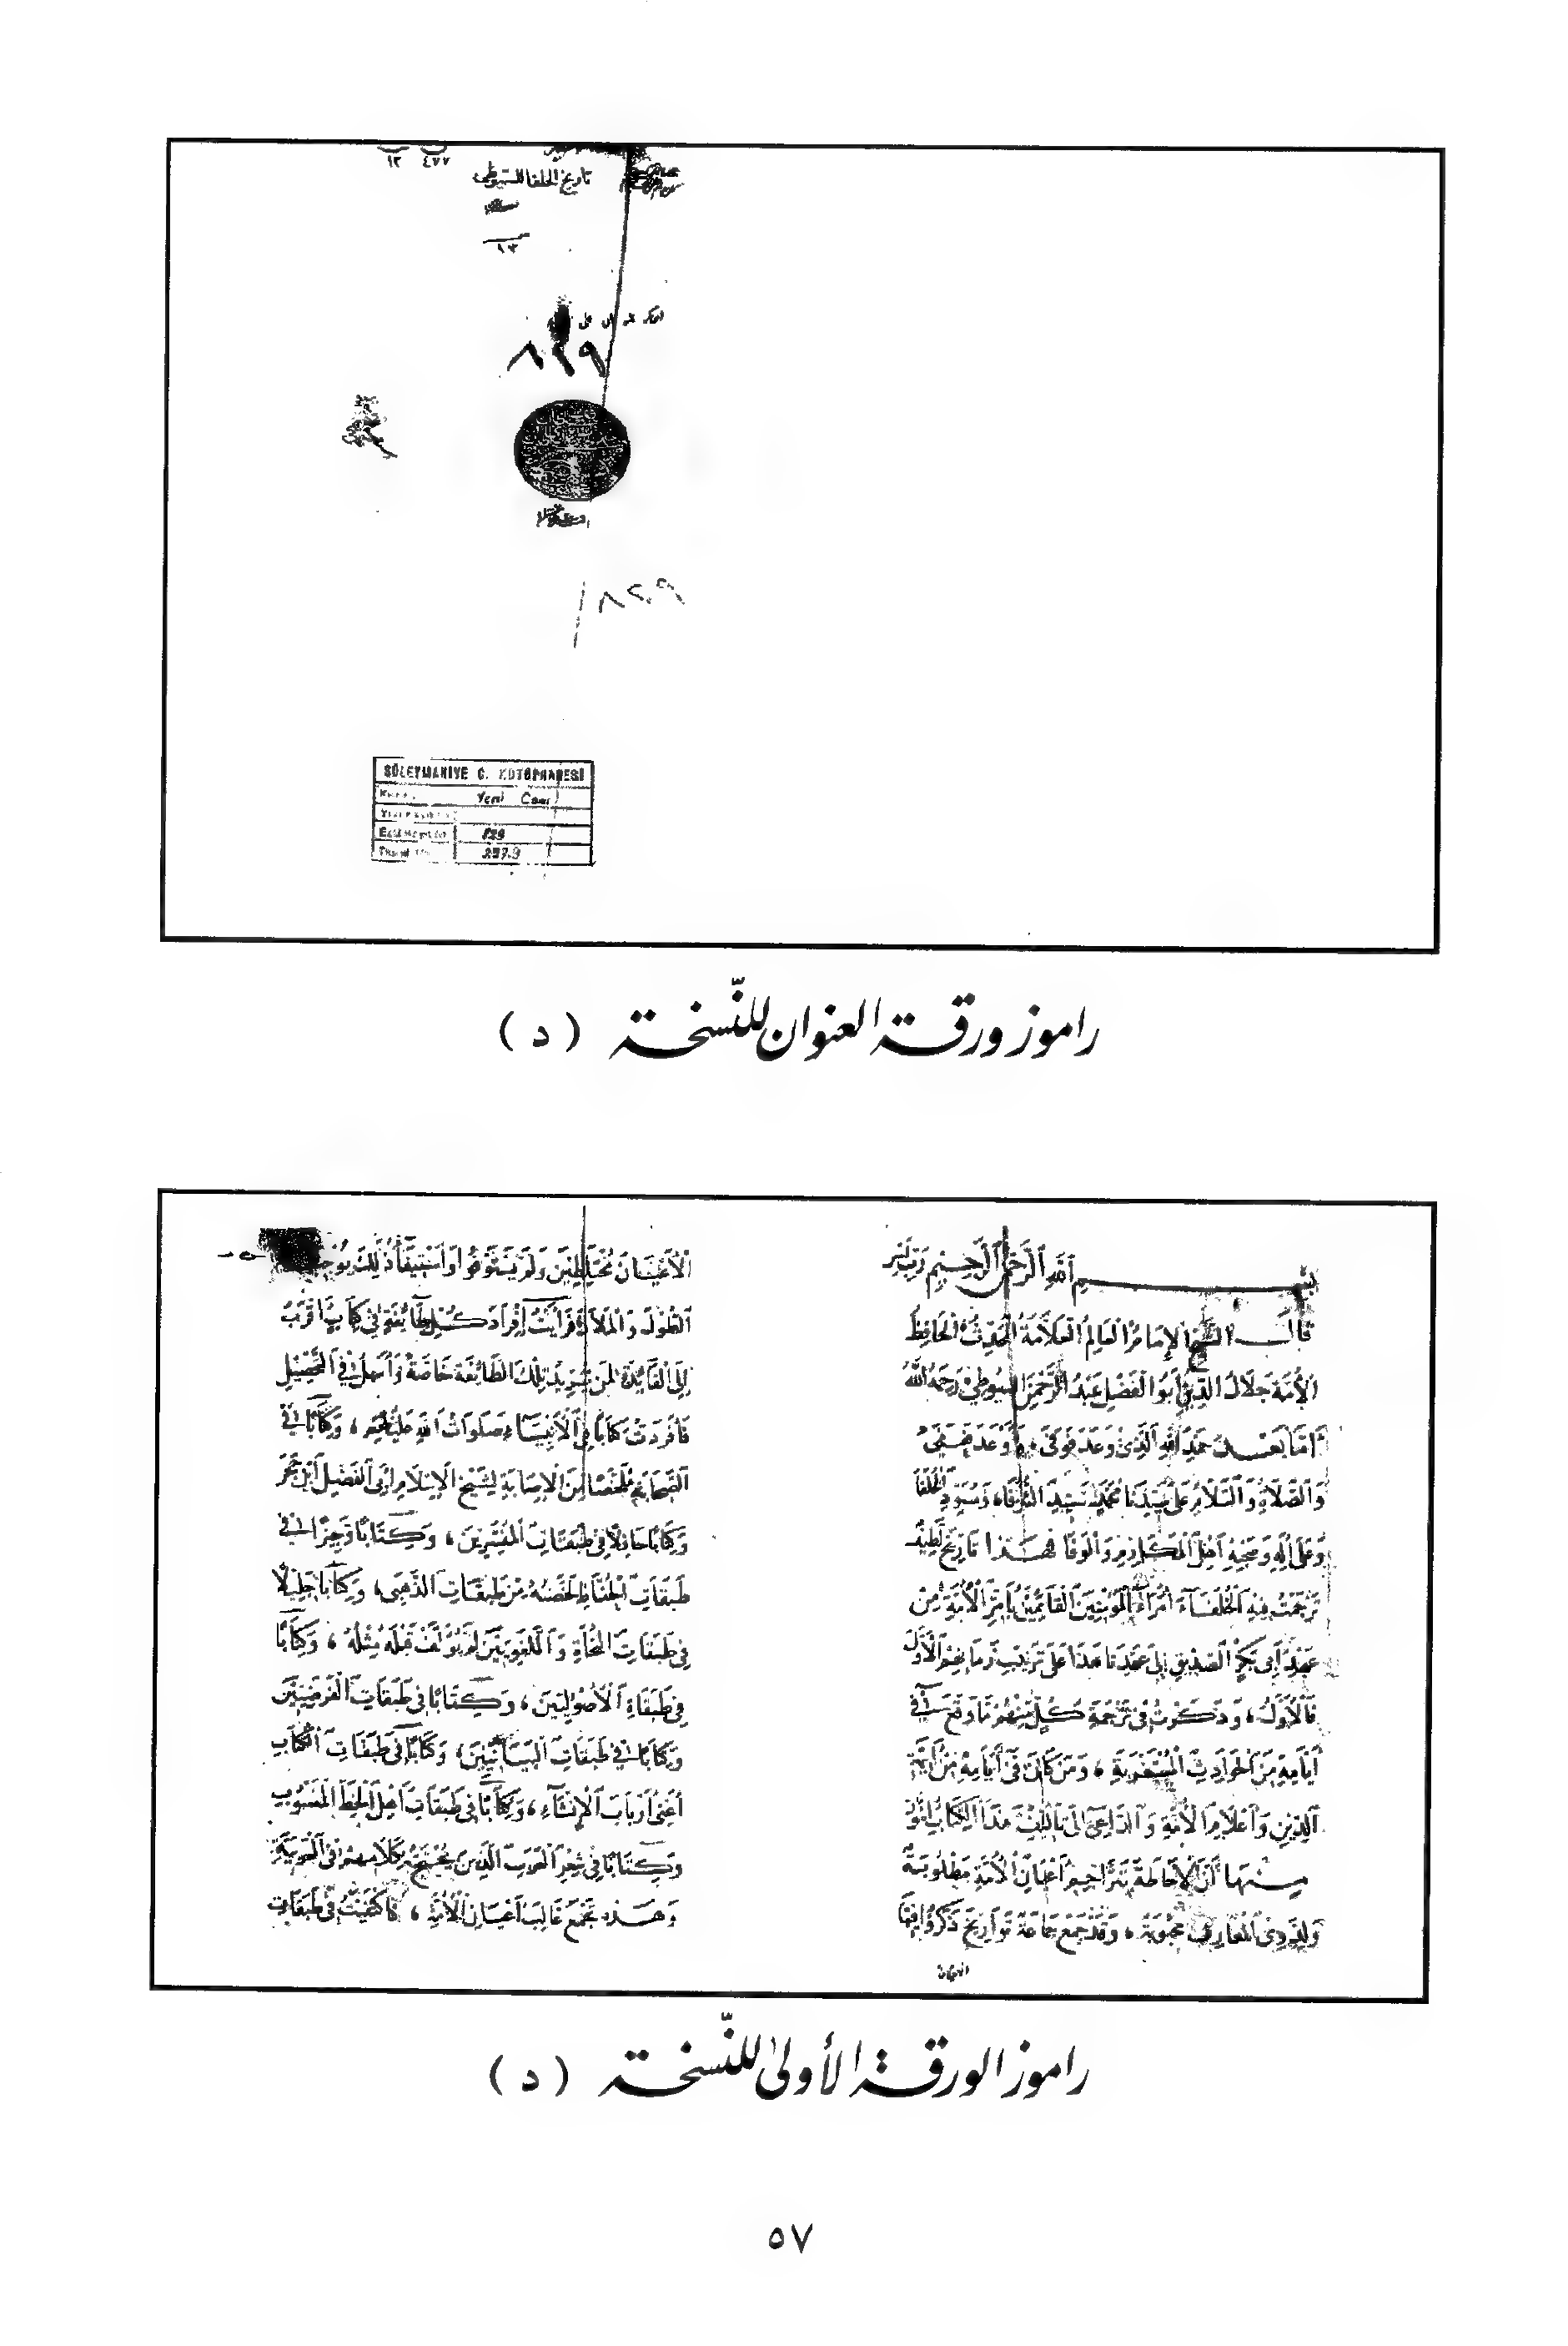 ٤٧٧ ١٣
تاريخ الخلفا للسيوطى
١٣
٨٢٩
٨٢٩
SÜLEYMANİYE G. KÜTÜPHANESİ
Yeni Cami
829
297.9
راموز ورقة العنوان للنّسخة (د)
بسم اللّٰه الرحمن الرحيم
قال الشيخ الإمام العالم العلامة الحافظ
الأمة جلال الدين أبو الفضل عبد الرحمن السيوطي رحمه الله
أما بعد حمد الله الذي وعد فوفى، وأوعد فعفى
والصلاة والسلام على سيدنا محمد سيد الشرفاء ومسود الخلفا
وعلى اله وصحبه اهل المكارم والوفا فهذا تاريخ لطيف
ترجمت فيه الخلفاء امراء المؤمنين القائمين بامر الأمة من
عهد ابى بكر الصديق الى عهدنا هذا على ترتيب زمانهم الأول
فالأول، وذكرت في ترجمة كل منهم ما وقع في
أيامه من الحوادث المستغربة، ومن كان في أيامه من أئمة
الدين وأعلام الأمة والداعي الى تأليف هذا الكتاب امور
منها أن الإحاطة بتراجم أعيان الأمة مطلوبة
ولذوي المعارف محبوبة، وقد جمع جماعة تواريخ ذكروا فيها
الاعيان
الأعيان مختلطين ولم يستوفوا واستيفاء ذلك يوجب
الطول والملال فرأيت إفراد كل طائفة في كتاب اقرب
إلى الفائدة لمن يريد تلك الطائفة خاصة وأسهل في التحصيل
فأفردت كتابا في الأنبياء صلوات الله عليهم، وكتابا في
الصحابة ملخصا من الإصابة لشيخ الإسلام ابي الفضل ابن حجر
وكتابا حافلا في طبقات المفسرين، وكتابا وجيزا في
طبقات الحفاظ لخصته من طبقات الذهبي، وكتابا جليلا
في طبقات النحاة واللغويين لم يؤلف قبله مثله، وكتابا
في طبقات الأصوليين، وكتابا في طبقات الفرضيين
وكتابا في طبقات البيانيين، وكتابا في طبقات الكتاب
أعني أرباب الإنشاء، وكتابا في طبقات أهل الخط المنسوب
وكتابا في شعر العرب الذين يحتج بكلامهم في العربية
وهذه تجمع غالب أعيان الأمة، فاكتفيت في طبقات
راموز الورقة الأولى للنّسخة (د)
٥٧